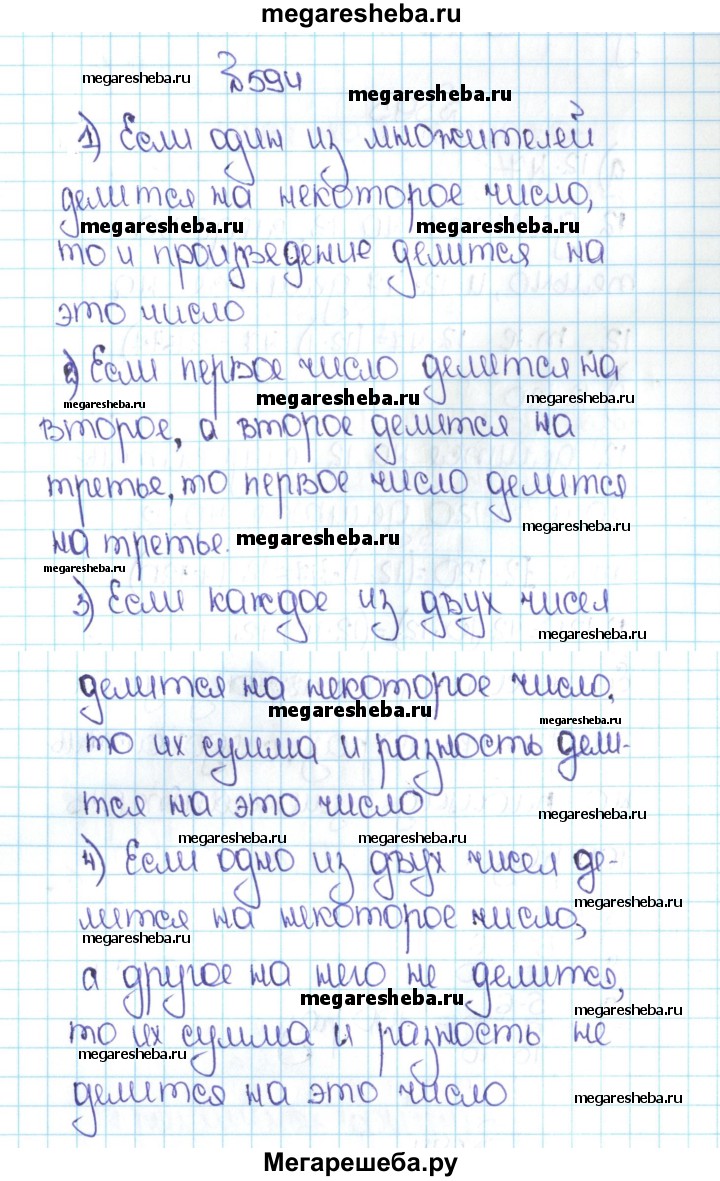 megaresheba.ru
megaresheba.ru
№594
megaresheba.ru
1) Если один из множителей
делится на некоторое число,
megaresheba.ru megaresheba.ru
то и произведение делится на
это число
2) Если первое число делится на
megaresheba.ru megaresheba.ru megaresheba.ru
второе, а второе делится на
третье, то первое число делится
megaresheba.ru
на третье.
megaresheba.ru
megaresheba.ru
3) Если каждое из двух чисел
megaresheba.ru
делится на некоторое число,
megaresheba.ru
megaresheba.ru
то их сумма и разность дели-
тся на это число
megaresheba.ru
megaresheba.ru megaresheba.ru
4) Если одно из двух чисел де-
megaresheba.ru
лится на некоторое число,
megaresheba.ru
а другое на него не делится,
megaresheba.ru
megaresheba.ru
то их сумма и разность не
megaresheba.ru
делится на это число
megaresheba.ru
Мегарешеба.ру